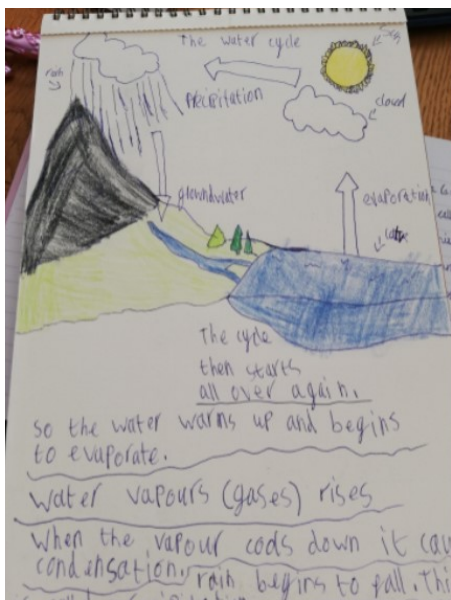 The water cycle
rain
precipitation
cloud
groundwater
evaporation
The cycle
then starts
all over again.
so the water warms up and begins
to evaporate.
water vapours (gases) rises
When the vapour cools down it
condensation. rain begins to fall.